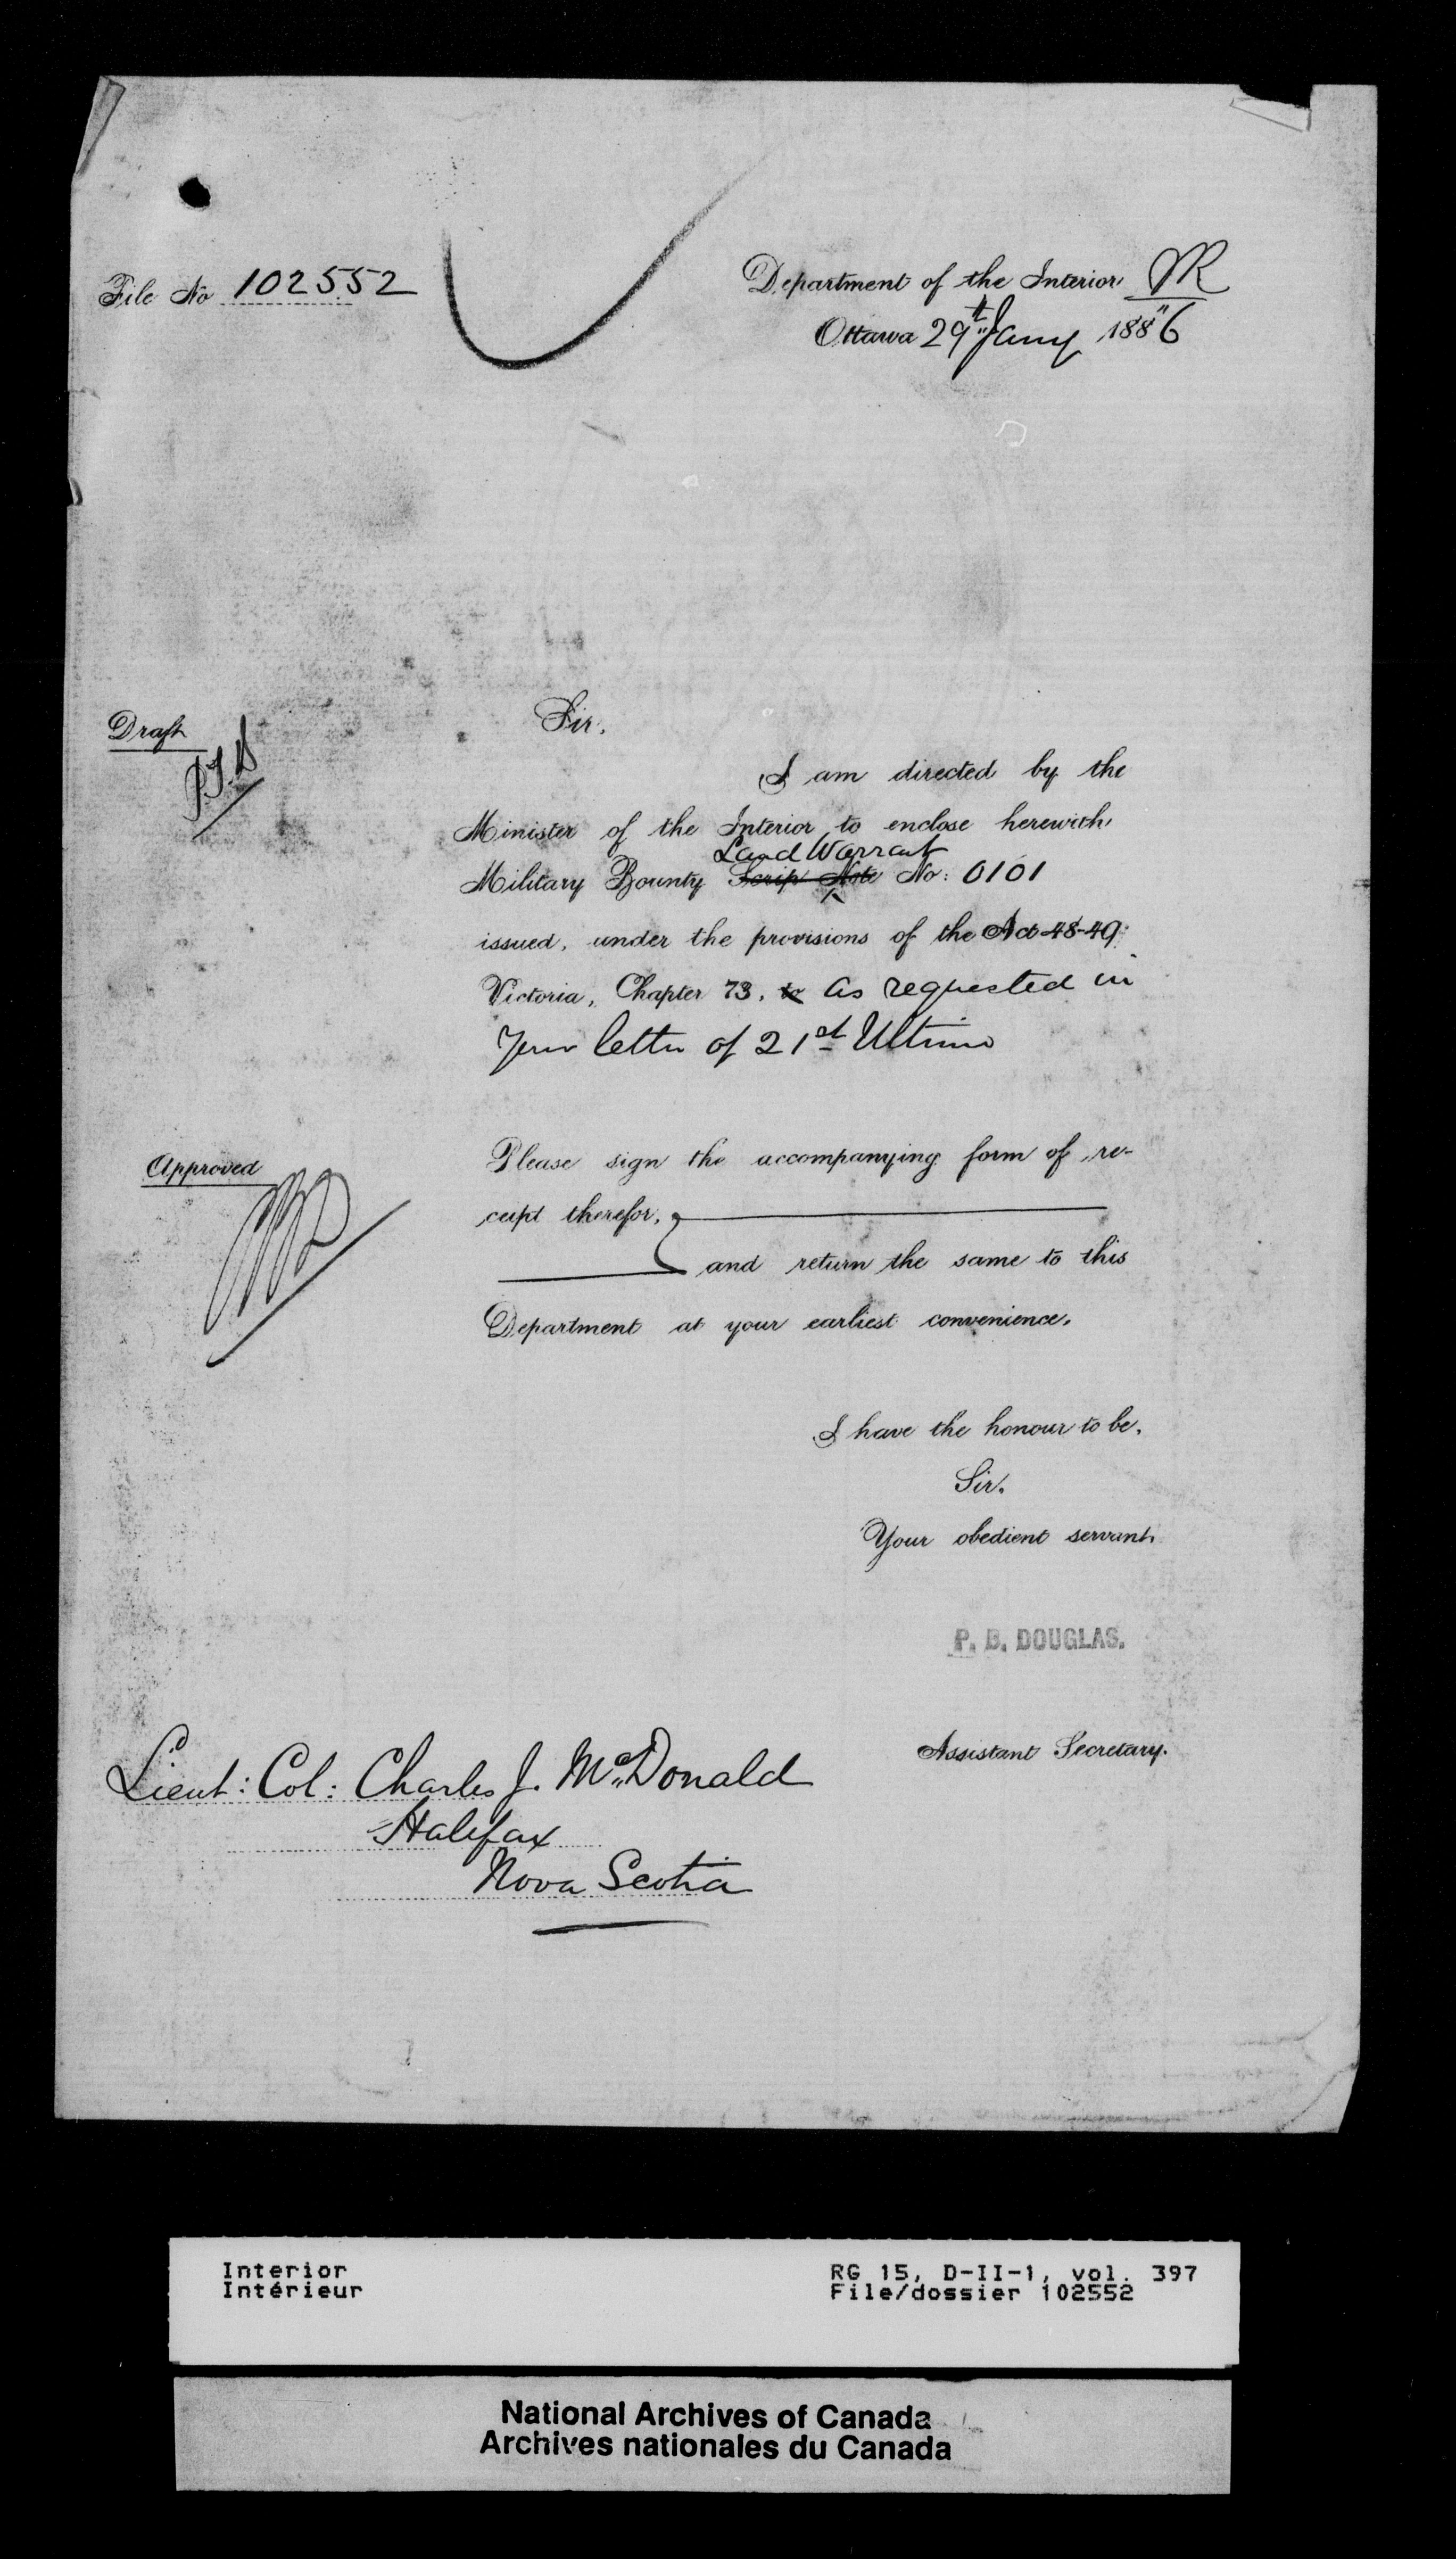 File No 102552
Department of the Interior
Ottawa 29th Jany 1886
Draft
Sir,
I am directed by the
Minister of the Interior to enclose herewith
Land Warrant
Military Bounty Scrip Note No: 0101
issued, under the provisions of the Act 48-49:
Victoria, Chapter 73, to as requested in
Your letter of 21st Ultimo
Approved
Please sign the accompanying form of re-
ceipt therefor,
and return the same to this
Department at your earliest convenience.
I have the honour to be,
Sir.
Your obedient servant,
P. B. DOUGLAS.
Assistant Secretary.
Lieut: Col: Charles J. McDonald
Halifax
Nova Scotia
Interior
Intérieur
RG 15, D-II-1, vol. 397
File/dossier 102552
National Archives of Canada
Archives nationales du Canada